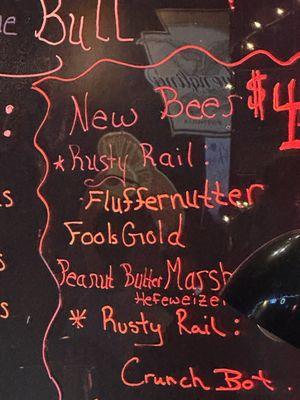 Bull
New Beers $4
*Rusty Rail:
Fluffernutter
Fools Gold
Peanut Butter Marsh
Hefeweizen
* Rusty Rail:
Crunch Bot.